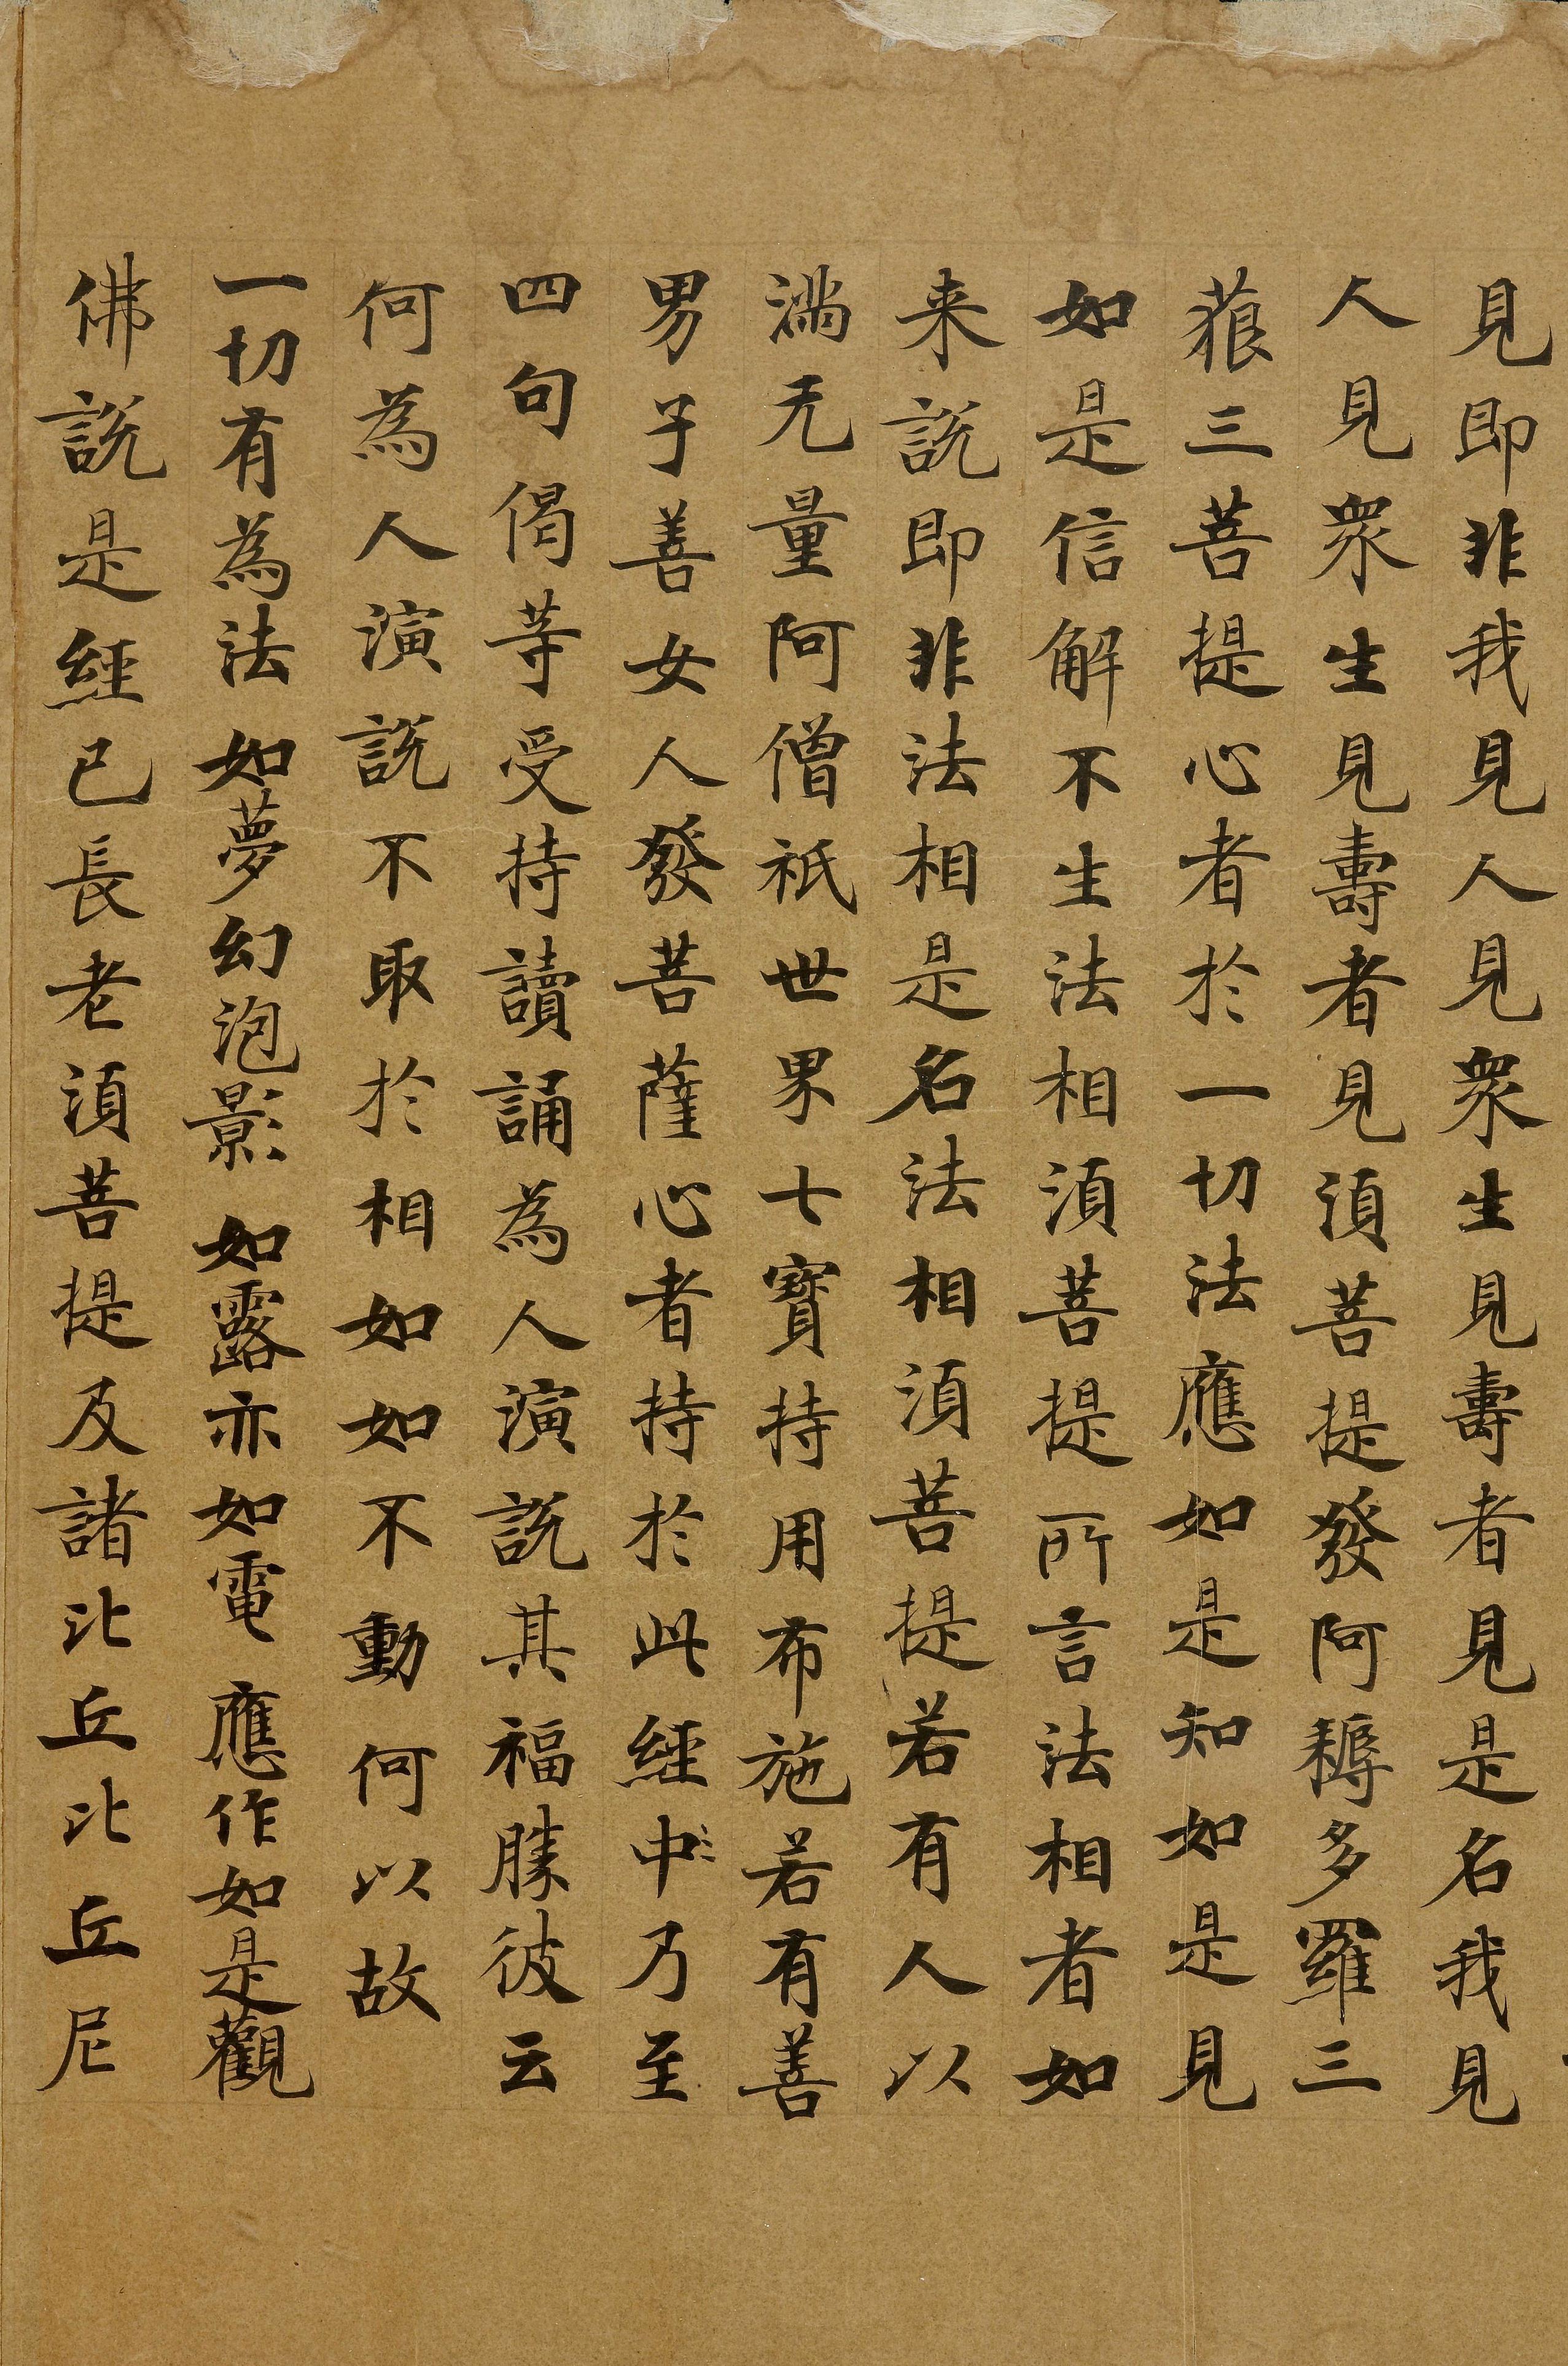 見即非我見人見衆生見壽者見是名我見
人見衆生見壽者見湏菩提發阿耨多羅三
藐三菩提心者於一切法應如是知如是見
如是信解不生法相湏菩提所言法相者如
来說即非法相是名法相湏菩提若有人以
滿无量阿僧祇世界七寶持用布施若有善
男子善女人發菩薩心者持於此經中乃至
四句偈等受持讀誦為人演說其福勝彼云
何為人演說不取於相如如不動何以故
一切有為法 如夢幻泡影 如露亦如電 應作如是觀
佛說是經已長老湏菩提及諸比丘比丘尼